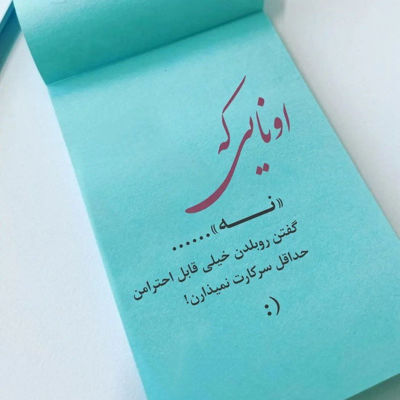 اونایی که
«نــه»......
گفتن روبلدن خیلی قابل احترامن
حداقل سرکارت نمیذارن!
:)